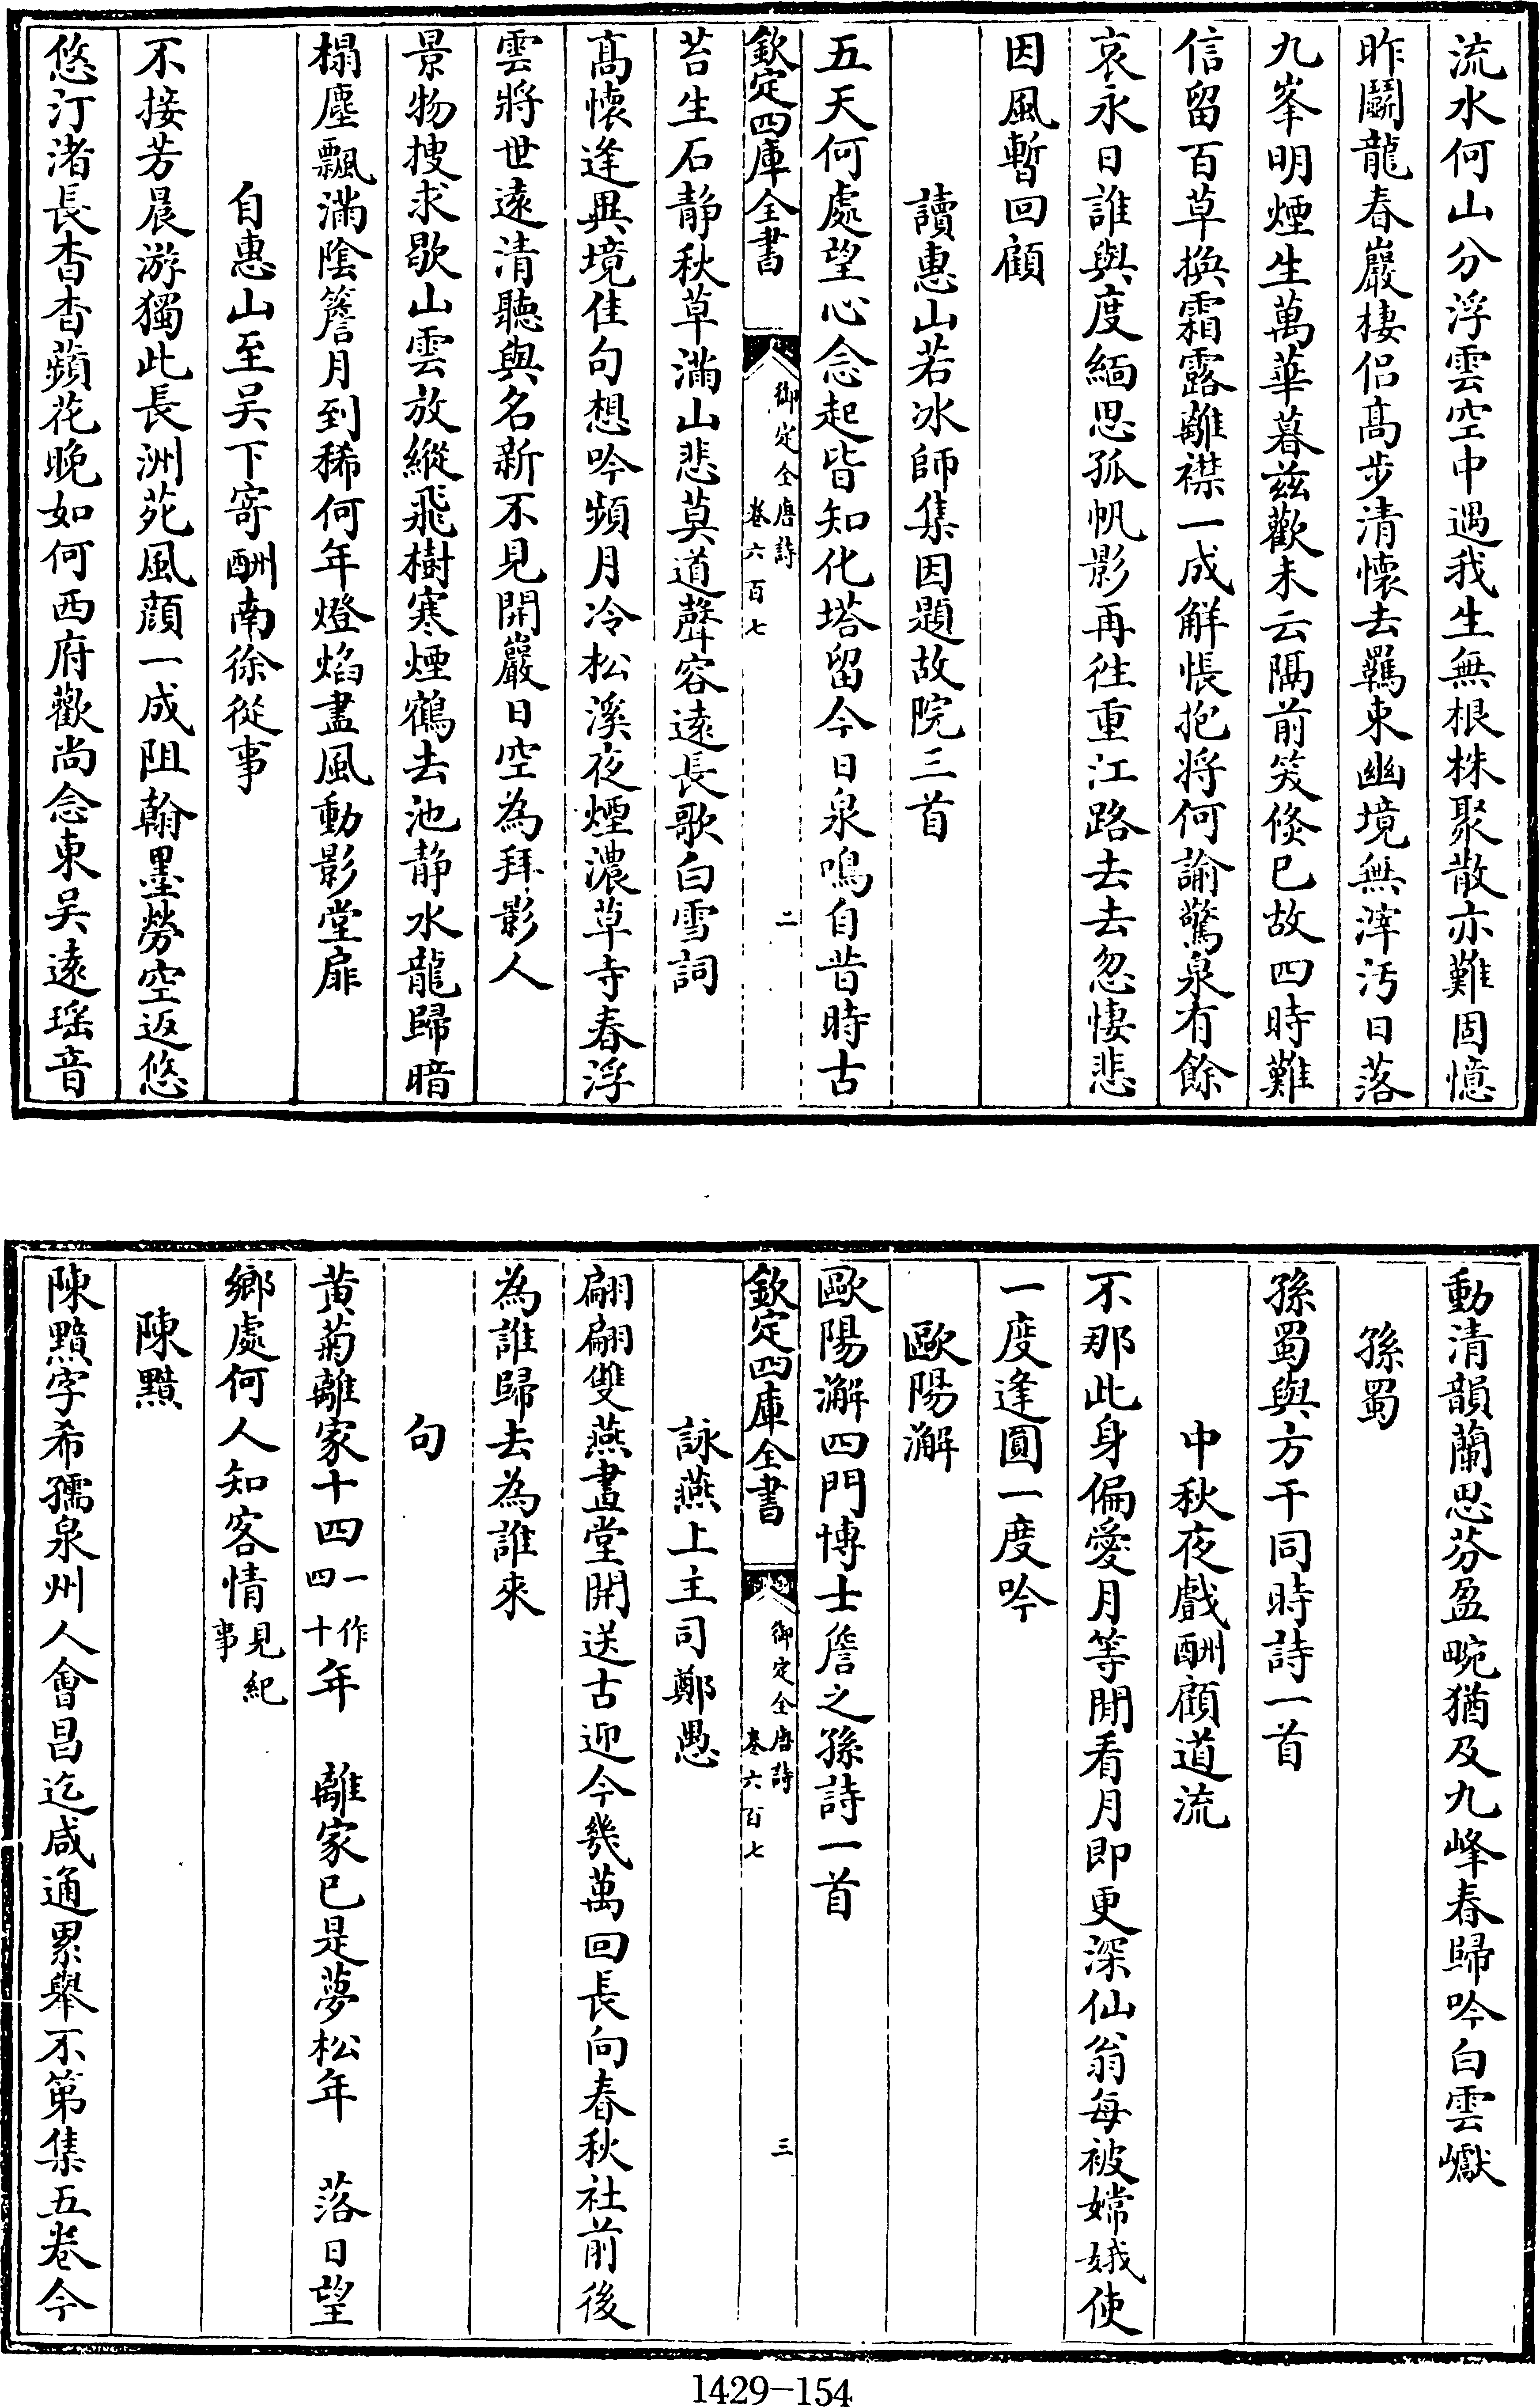 流水何山分浮雲空中遇我生無根株聚散亦難固憶
昨鬬龍春巖棲侶高步清懷去羈束幽境無滓汚日落
九峯明煙生萬華暮兹歡未云隔前笑倐已故四時難
信留百草換霜露離襟一成解悵抱將何諭驚泉有餘
哀永日誰與度緬思孤帆影再往重江路去去忽悽悲
因風暫回顧
讀惠山若冰師集因題故院三首
五天何處望心念起皆知化塔留今日泉鳴自昔時古
欽定四庫全書
御定全唐詩
卷六百七
二
苔生石静秋草滿山悲莫道聲容遠長歌白雪詞
高懷逢異境佳句想吟頻月冷松溪夜煙濃草寺春浮
雲將世遠清聽與名新不見開巖日空為拜影人
景物搜求歇山雲放縱飛樹寒煙鶴去池静水龍歸暗
榻塵飄滿陰簷月到稀何年燈焰盡風動影堂扉
自惠山至吴下寄酬南徐從事
不接芳晨游獨此長洲苑風顔一成阻翰墨勞空返悠
悠汀渚長杳杳蘋花晚如何西府歡尚念東吴遠瑶音
動清韻蘭思芬盈畹猶及九峰春歸吟白雲巘
孫蜀
孫蜀與方干同時詩一首
中秋夜戲酬顧道流
不那此身偏愛月等閒看月即更深仙翁每被嫦娥使
一度逢圓一度吟
歐陽澥
歐陽澥四門博士詹之孫詩一首
欽定四庫全書
御定全唐詩
卷六百七
三
詠燕上主司鄭愚
翩翩雙燕畫堂開送古迎今幾萬回長向春秋社前後
為誰歸去為誰來
句
黄菊離家十四一作四十年 離家已是夢松年 落日望
鄉處何人知客情見紀事
陳黯
陳黯字希孺泉州人會昌迄咸通累舉不第集五卷今
1429-154